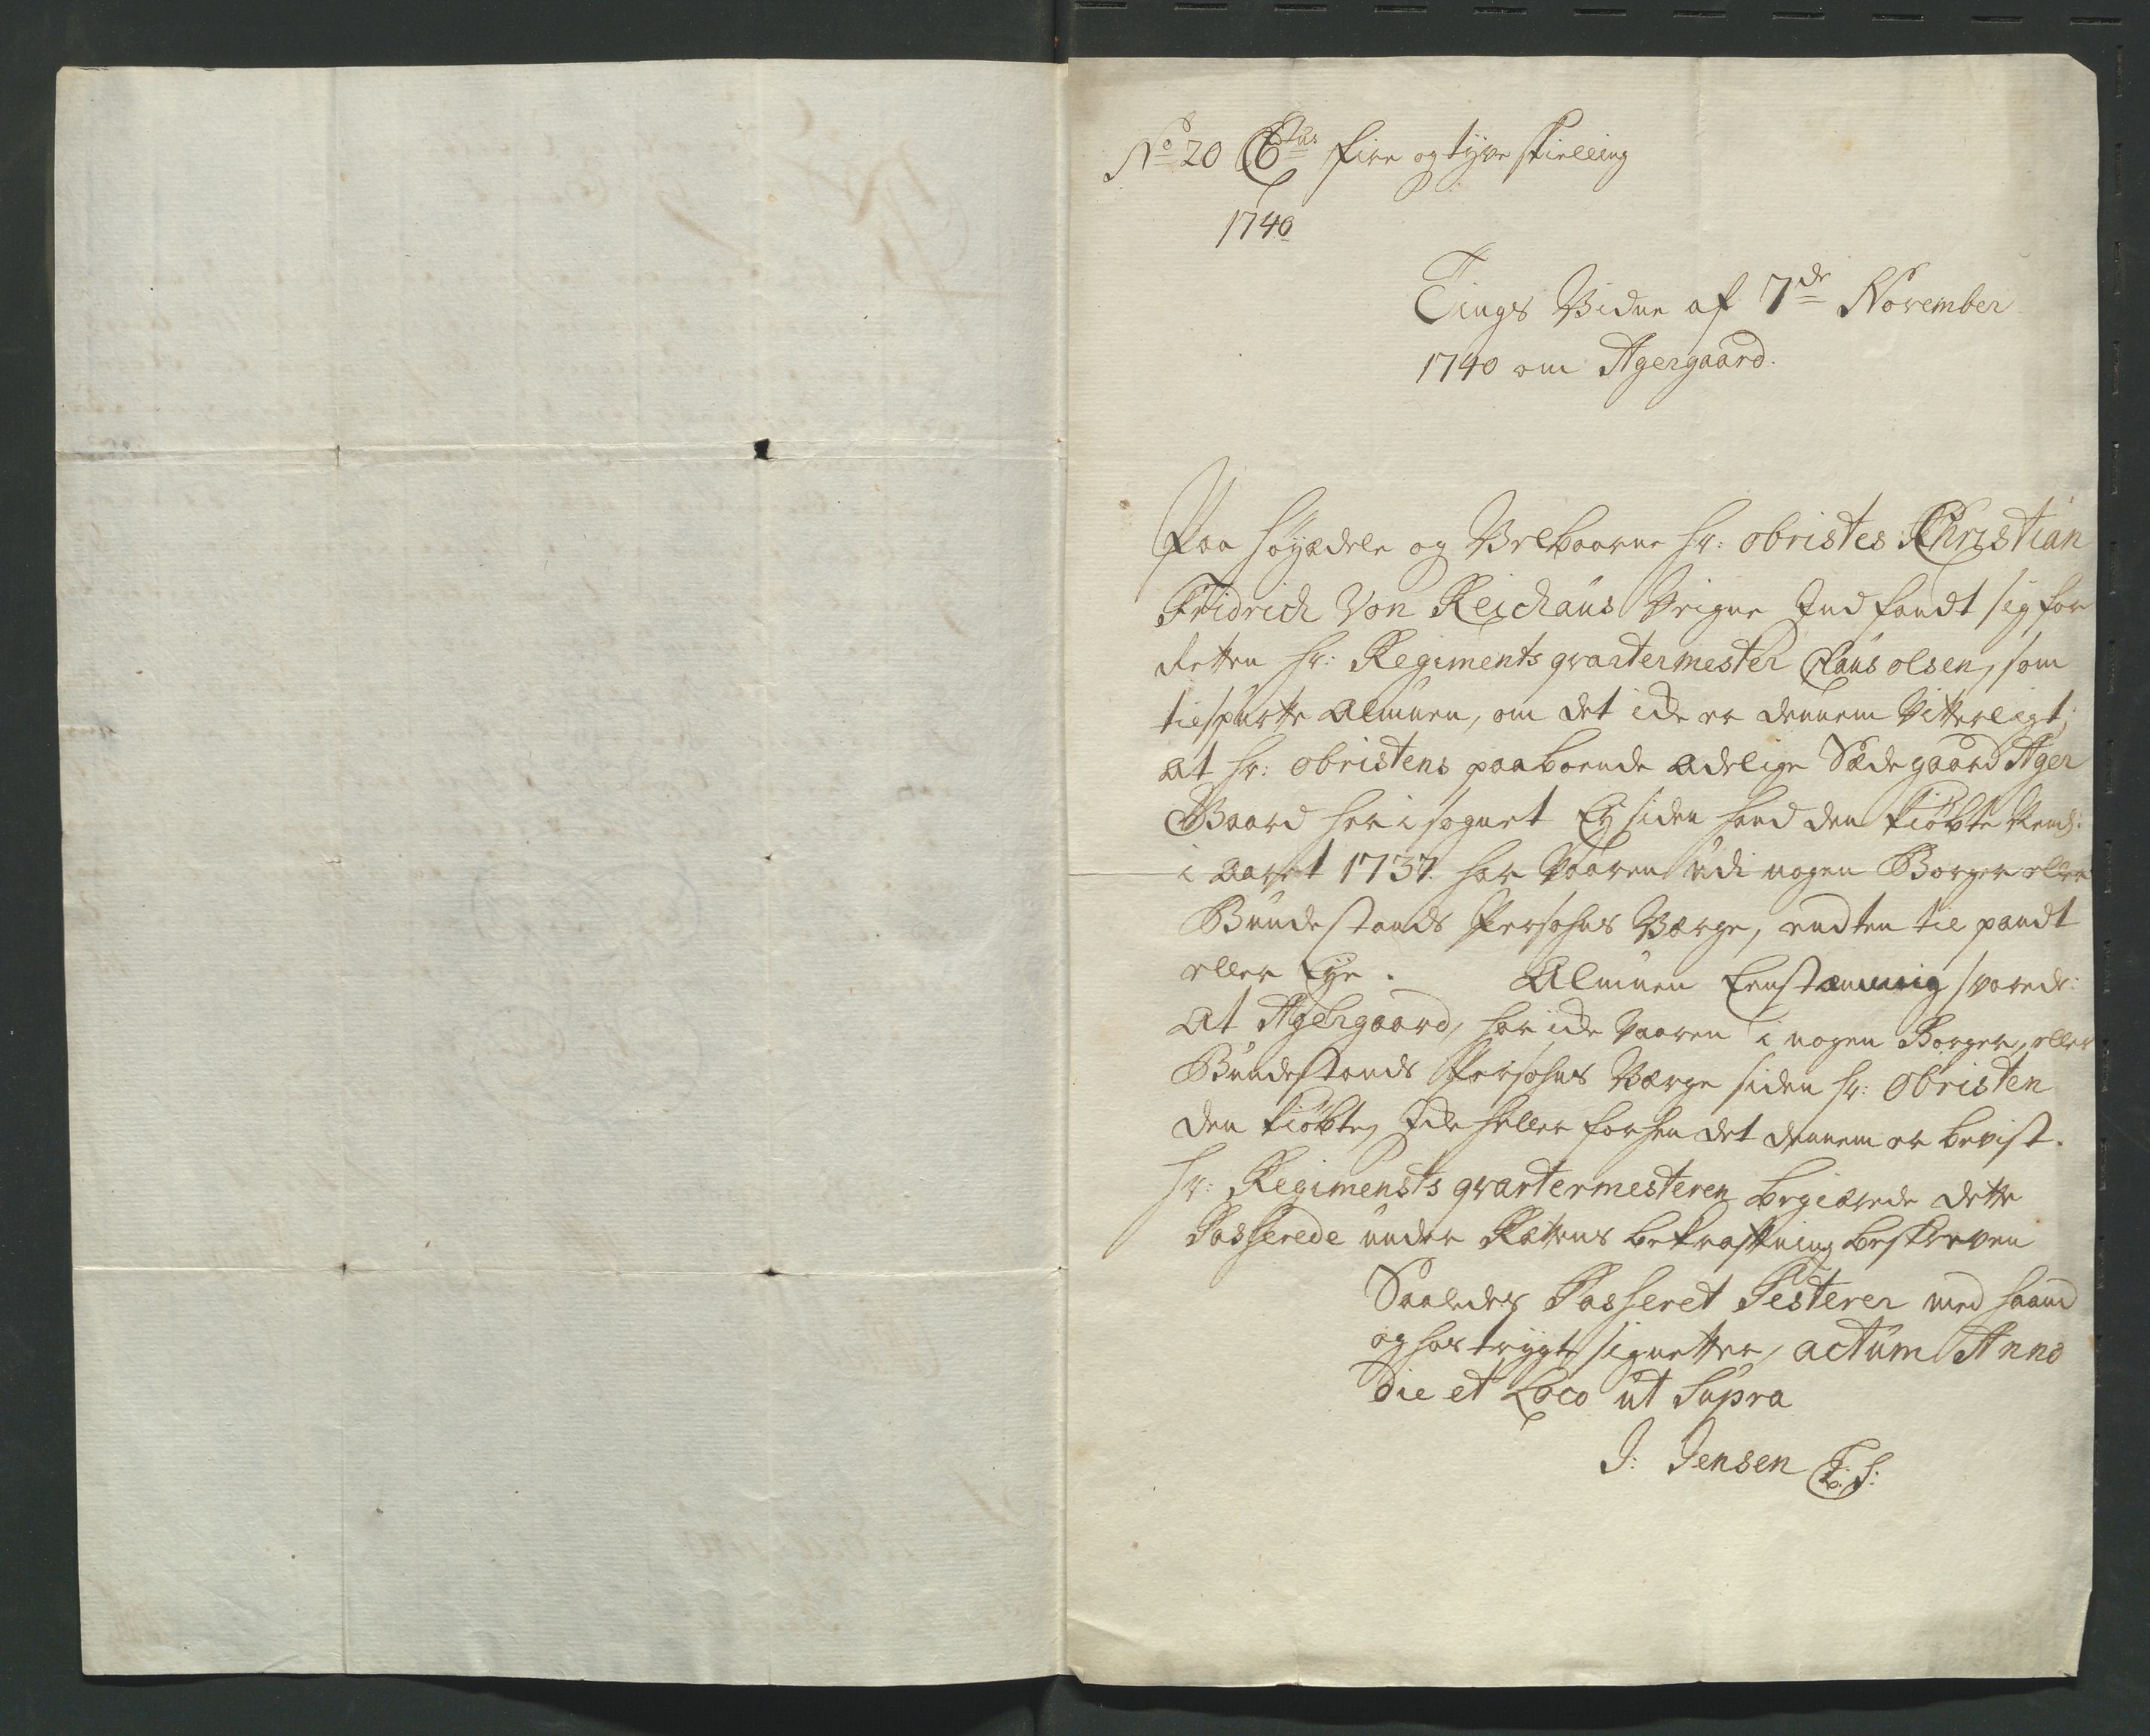 No 20 C6tus fire og tyve skielling
1740
Tings Vidne af 7de November
1740 om Agergaard.
Paa Høyædele og Velbaarne Hr: Obristes Christian
Fridrich Von Reichaus Veigne Indfandt sig for
Retten Hr: Regiments qvartermester Claus Olsen, som
tilspurte Almuen, om det icke er dennem Vitterligt,
at Hr: Obristens paaboende Adelige Sædegaard Ager
Gaard her i sognet Ej siden hand den kiøbte
i Aaret 1737. har Vaaren udi nogen Borger eller
Bundestands Persohns Værge, endten til pandt
eller Eye. Almuen Eenstæmmig svarede:
At Agergaard, har icke Vaaren i nogen Borger, eller
Bundestands Persohns Værge siden Hr: Obristen
den kiøbte, Icke heller forhen det dennem er bevist.
Hr: Regimensts qvartermesteren begiærede dette
Passerede under Rættens bekræftning beskreven
Saaledes Passeret Testerer med Haand
og hos trygte signetter, actum Anno
Die et Loco ut Supra
J: Jensen